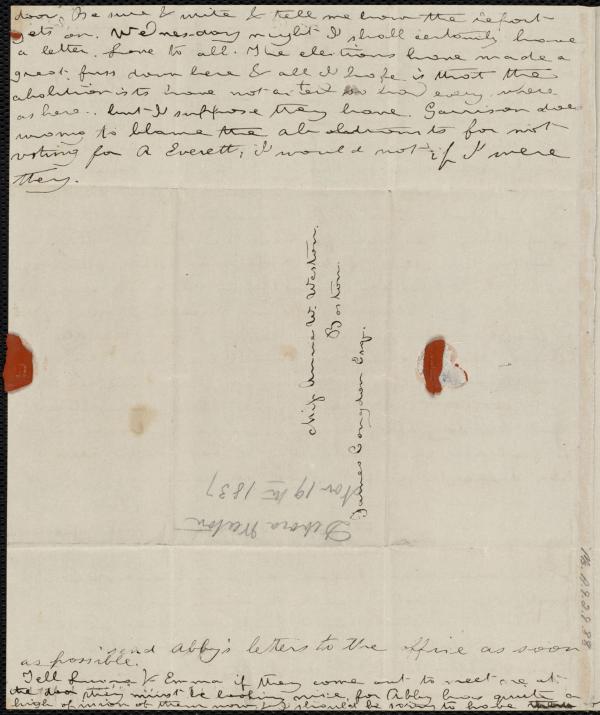 door. Be sure & write & tell me how the report
gets on. Wednesday night I shall certainly have
a letter. Love to all. The elections have made a
great fuss down here & all I hope is that the
abolitionists have not acted so every where
as here.. but I suppose they have. Garrison does
wrong to blame the abolitionists for not
voting for A Everett, I would not if I were
they.
Miss Anne W. Weston.
Boston.
James Congdon Esq.
Debora Weston
Nov 19th 1837
send Abby's letters to the office as soon
as possible.
Tell & Emma if they come out to meet me at
the door they must be looking nice, for Abby has quite a
high opinion of them now & I should be sorry to have